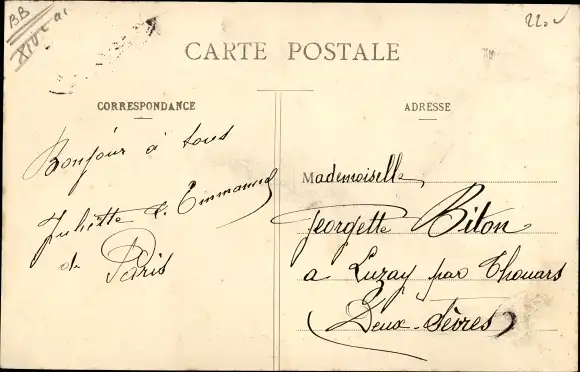 BB
XIVe ar
220
CARTE POSTALE
CORRESPONDANCE
ADRESSE
Bonjour à tous
Juliette & Emmanuel
de Paris
Mademoiselle
Georgette Biton
a Luzay par Thouars
(Deux-Sèvres)